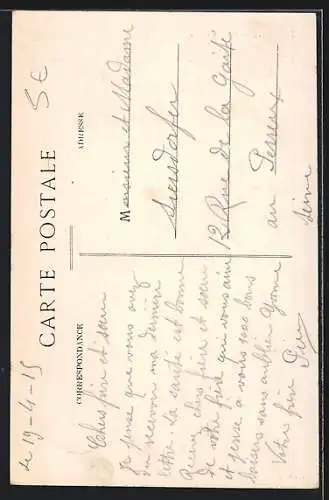 le 19-4-15
CARTE POSTALE
5€
CORRESPONDANCE
ADRESSE
Chers frère et sœur
Je pense que vous avez
du recevoir ma dernière
lettre. La santé est bonne
Recevez chers frère et sœur
de votre frère qui vous aime
et pense a vous 1000 bons
baisers sans oublier Yvonne
Votre frère
Monsieur et Madame
13 Rue de la Gaité
au Perreux
Seine